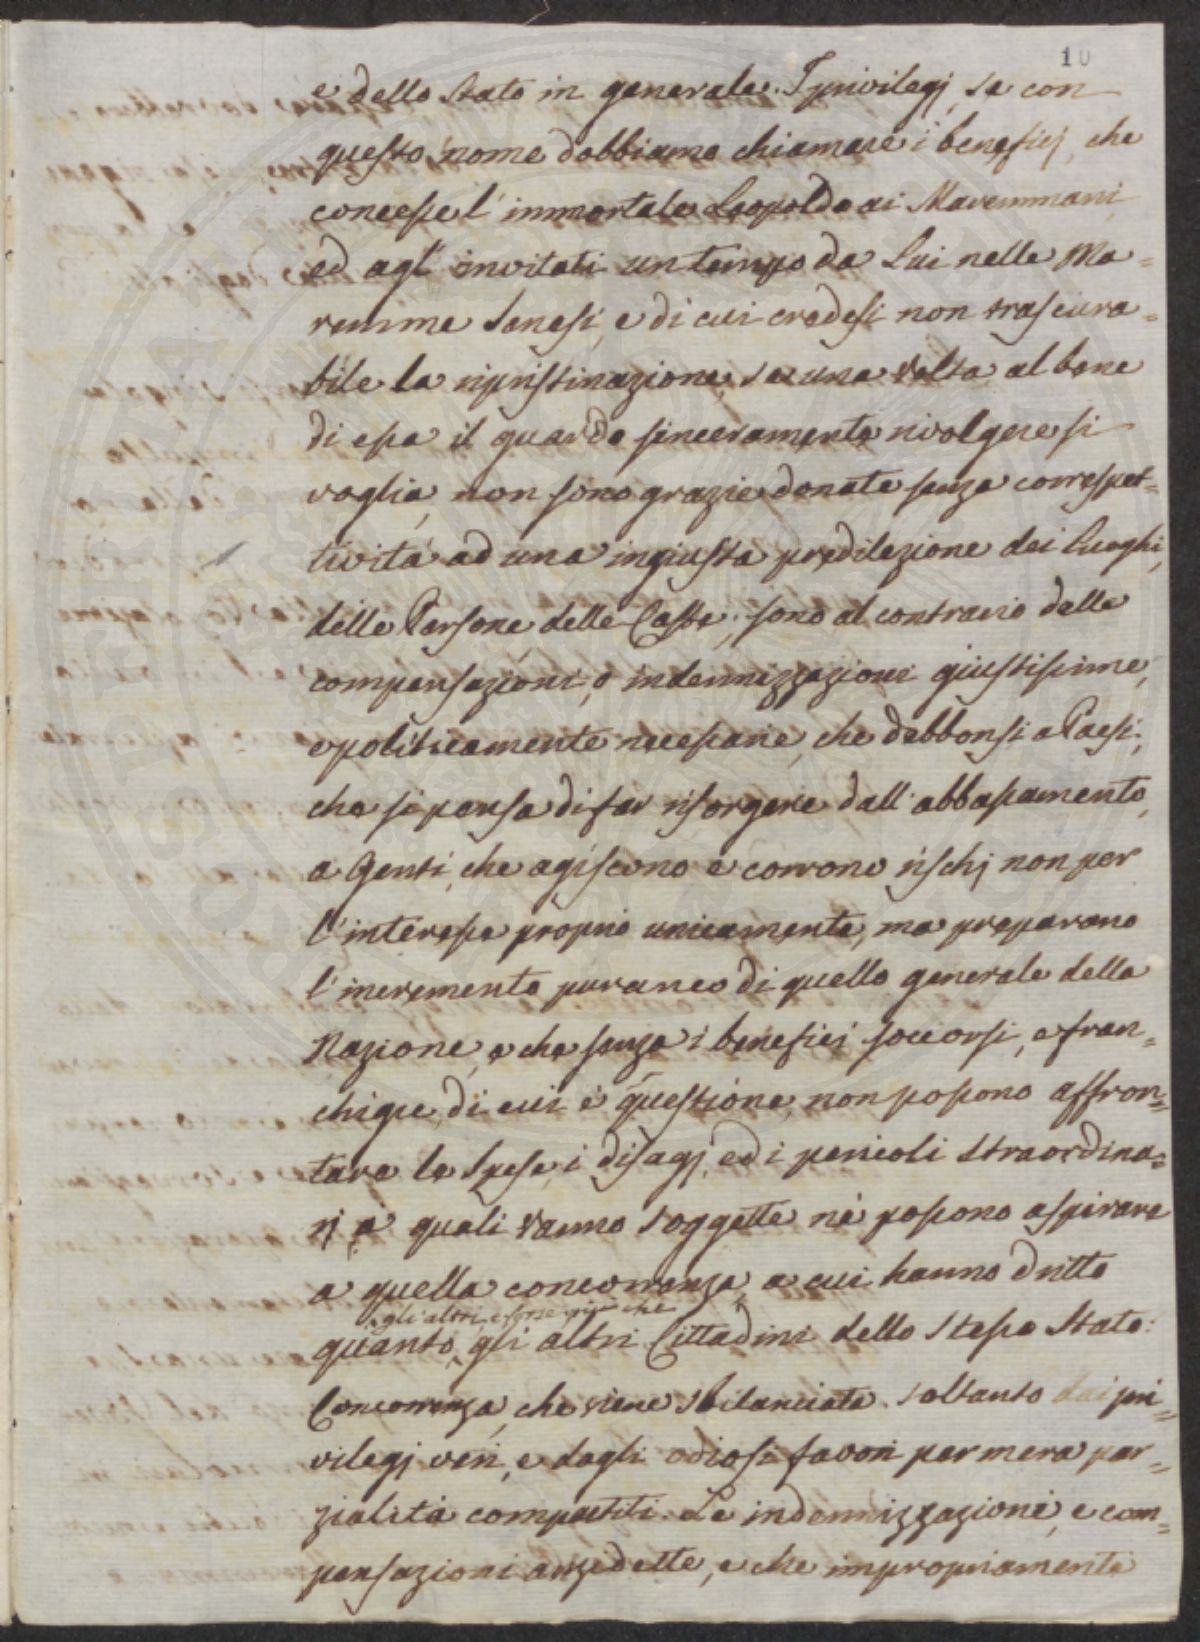 10
e dello Stato in generale. I privilegj, se con
questo nome dobbiamo chiamare i beneficj, che
concesse l'immortale Leopoldo ai Maremmani
ed agl' invitati un tempo da Lui nelle Ma=
remme Sanesi, e di cui credesi non trascura=
bile la ripristinazione, se una volta al bene
di essa il guardo sinceramente rivolgere si
voglia, non sono grazie donate senza correspet=
tività ad una ingiusta predilezione dei Luoghi,
delle Persone, delle Caste; sono al contrario delle
compensazioni, o indennizzazioni giustissime,
e politicamente necessarie, che debbonsi a Paesi,
che si pensa di far risorgere dall' abbassamento,
a Genti, che agiscono e corrono rischj non per
l'interesse proprio unicamente, ma preparano
l'incremento puranco di quello generale della
Nazione, e che senza i beneficj soccorsi, e fran=
chigie, di cui è questione, non possono affron=
tare le Spese, i disagj, ed i pericoli straordina=
rj a quali vanno soggette nè possono aspirare
a quella concorrenza, a cui hanno dritto
gli altri, e forse più che
quanto gli altri Cittadini dello Stesso Stato:
Concorrenza, che viene sbilanciata soltanto dai pri=
vilegj veri, e dagli odiosi favori per mera par=
zialità compartiti. Le indennizzazioni, e com=
pensazioni anzidette, e che impropriamente